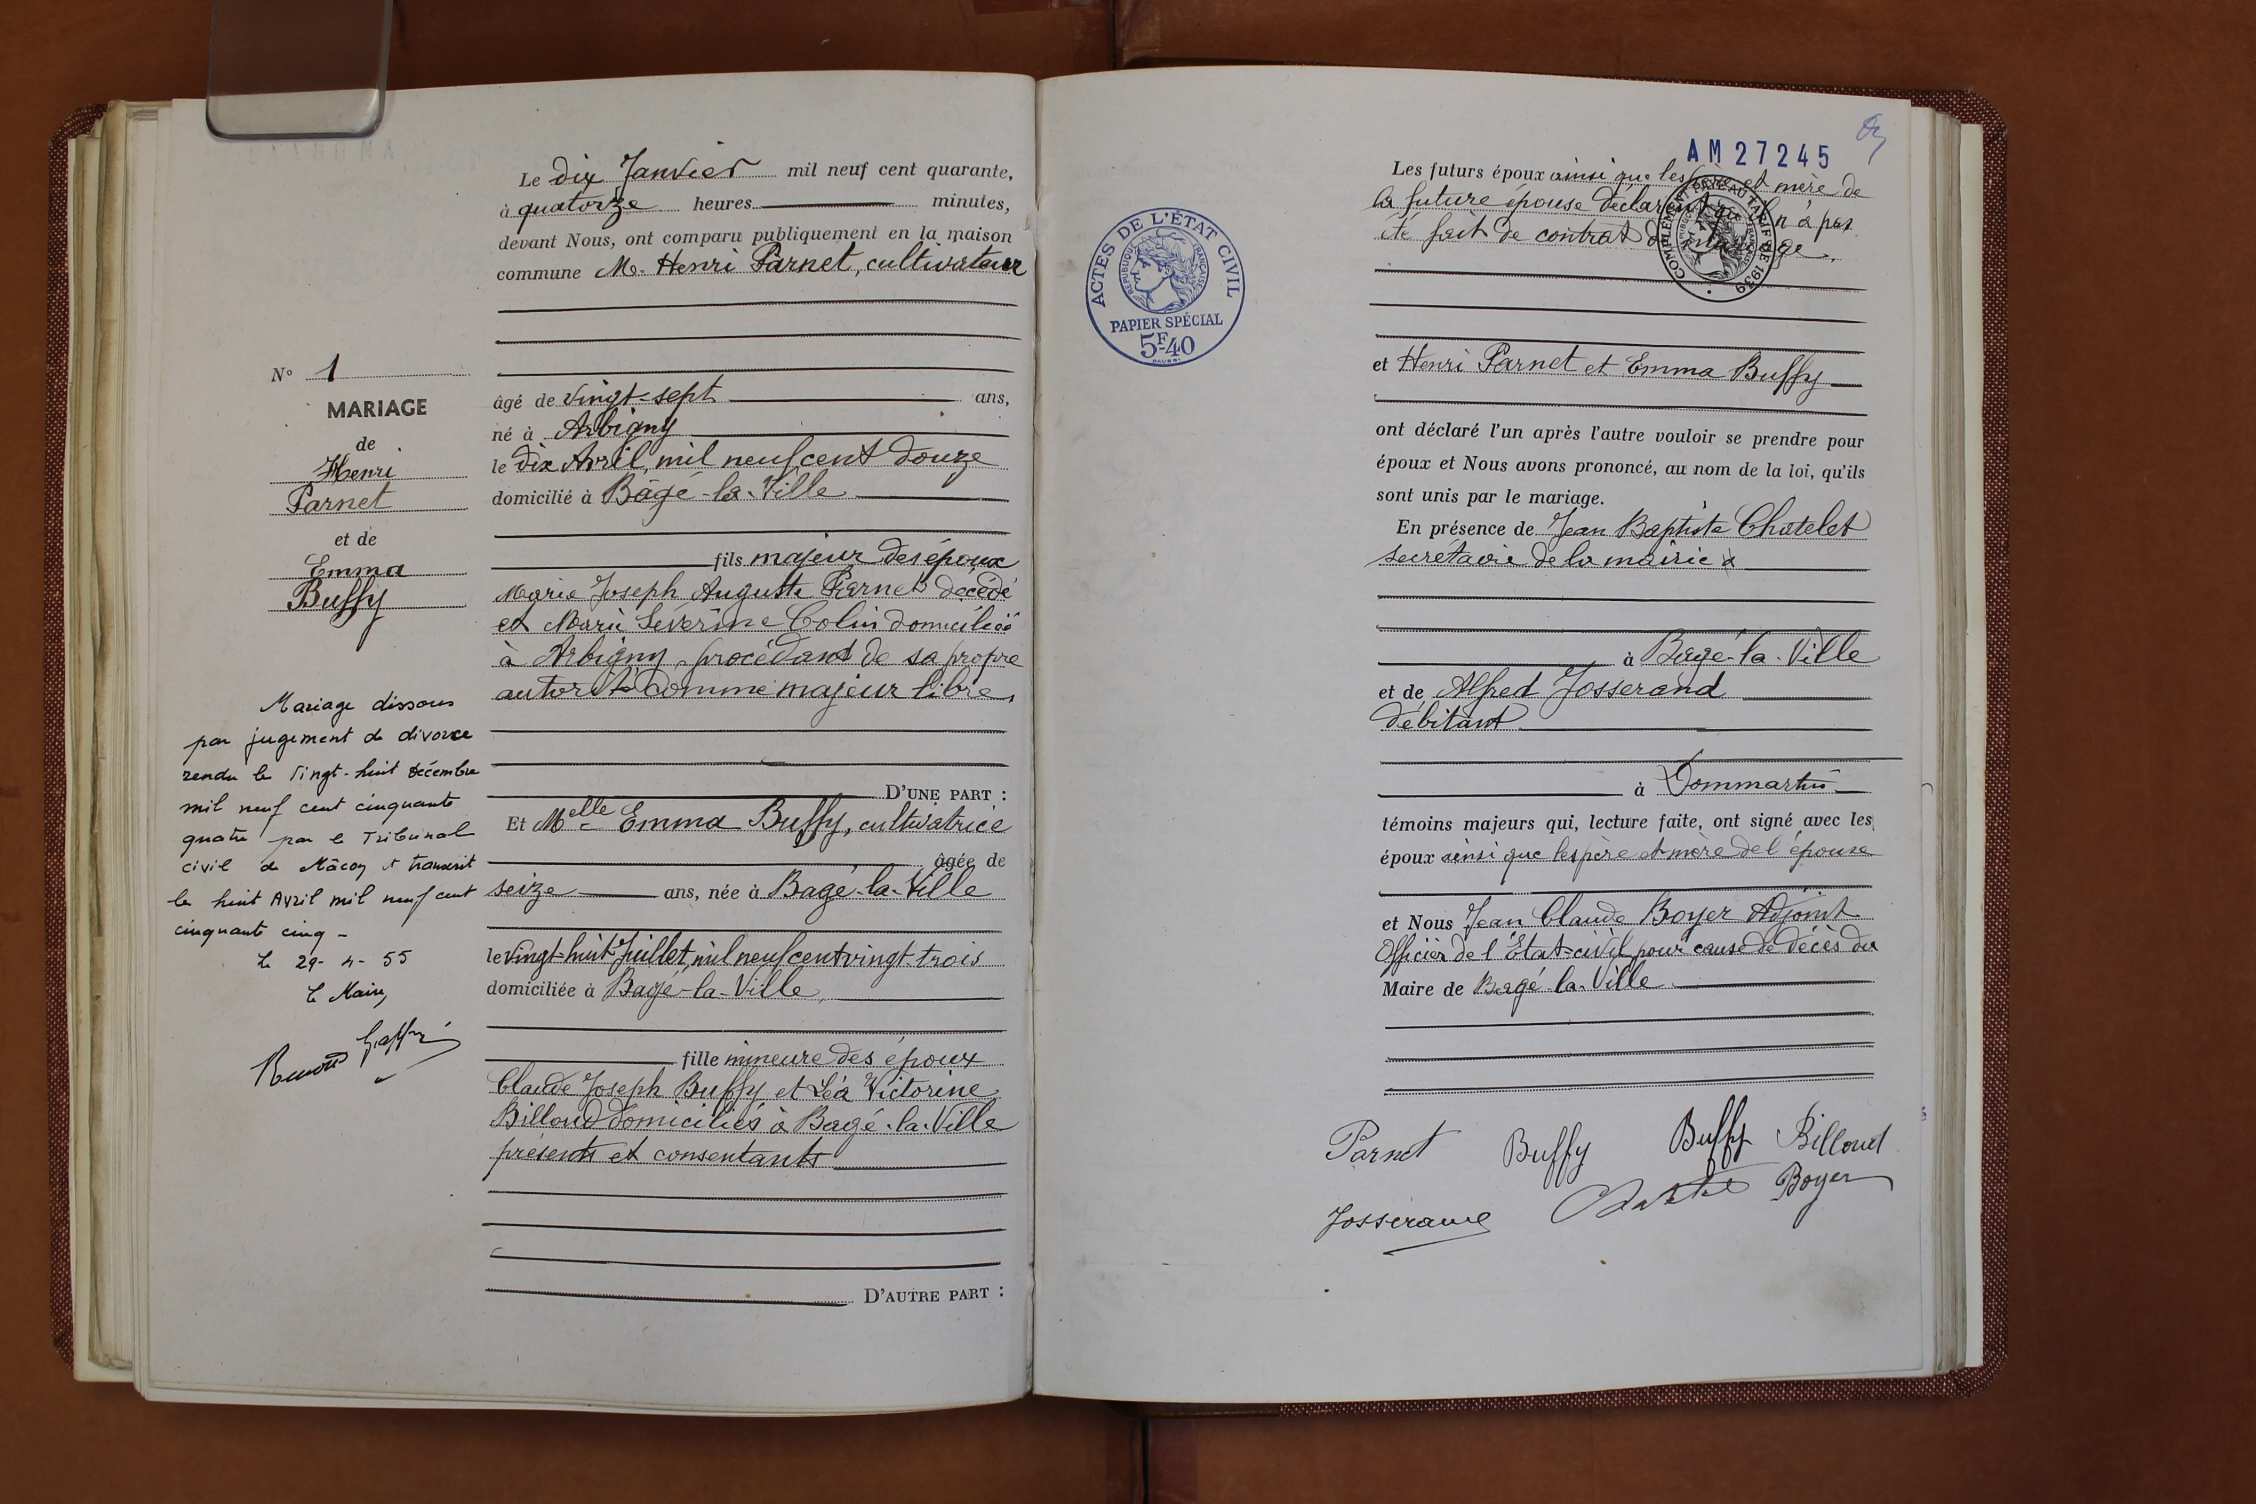 Le dix Janvier mil neuf cent quarante,
à quatorze heures minutes,
devant Nous, ont comparu publiquement en la maison
commune M. Henri Parnet, cultivateur
âgé de vingt-sept ans,
né à Arbigny
le dix Avril, mil neuf cent douze
domicilié à Bâgé-la-Ville
fils majeur des époux
Marie Joseph Auguste Parnet décédé
et Marie Séverine Colin domiciliée
à Arbigny, procédant de sa propre
autorité comme majeur libre,
D'UNE PART :
Et Melle Emma Buffy, cultivatrice
âgée de
seize ans, née à Bagé-la-Ville
le vingt-huit Juillet, mil neuf cent vingt-trois
domiciliée à Bagé-la-Ville,
fille mineure des époux
Claude Joseph Buffy et Léa Victorine
Billoud domiciliés à Bagé-la-Ville
présents et consentants
D'AUTRE PART :
N° 1
MARIAGE
de
Henri
Parnet
et de
Emma
Buffy
Mariage dissous
par jugement de divorce
rendu le vingt-huit décembre
mil neuf cent cinquante
quatre par le Tribunal
civil de Mâcon et transcrit
le huit Avril mil neuf cent
cinquante cinq -
Le 29-4-55
Le Maire,
ACTES DE L'ÉTAT CIVIL
RÉPUBLIQUE FRANÇAISE
PAPIER SPÉCIAL
5F.40
AM 27245
COMPLÉMENT PAYÉ AU TARIF DE 1939
Les futurs époux ainsi que les père et mère de
la future épouse déclarent qu'il n'a pas
été fait de contrat de mariage.
et Henri Parnet et Emma Buffy
ont déclaré l'un après l'autre vouloir se prendre pour
époux et Nous avons prononcé, au nom de la loi, qu'ils
sont unis par le mariage.
En présence de Jean Baptiste Chatelet
secrétaire de la mairie
à Bagé-la-Ville
et de Alfred Josserand
débitant
à Dommartin
témoins majeurs qui, lecture faite, ont signé avec les
époux ainsi que les père et mère de l'épouse
et Nous Jean Claude Boyer Adjoint
Officier de l'Etat-civil pour cause de décès du
Maire de Bagé-la-Ville
Parnet Buffy Buffy Billoud
Josserand Chatelet Boyer